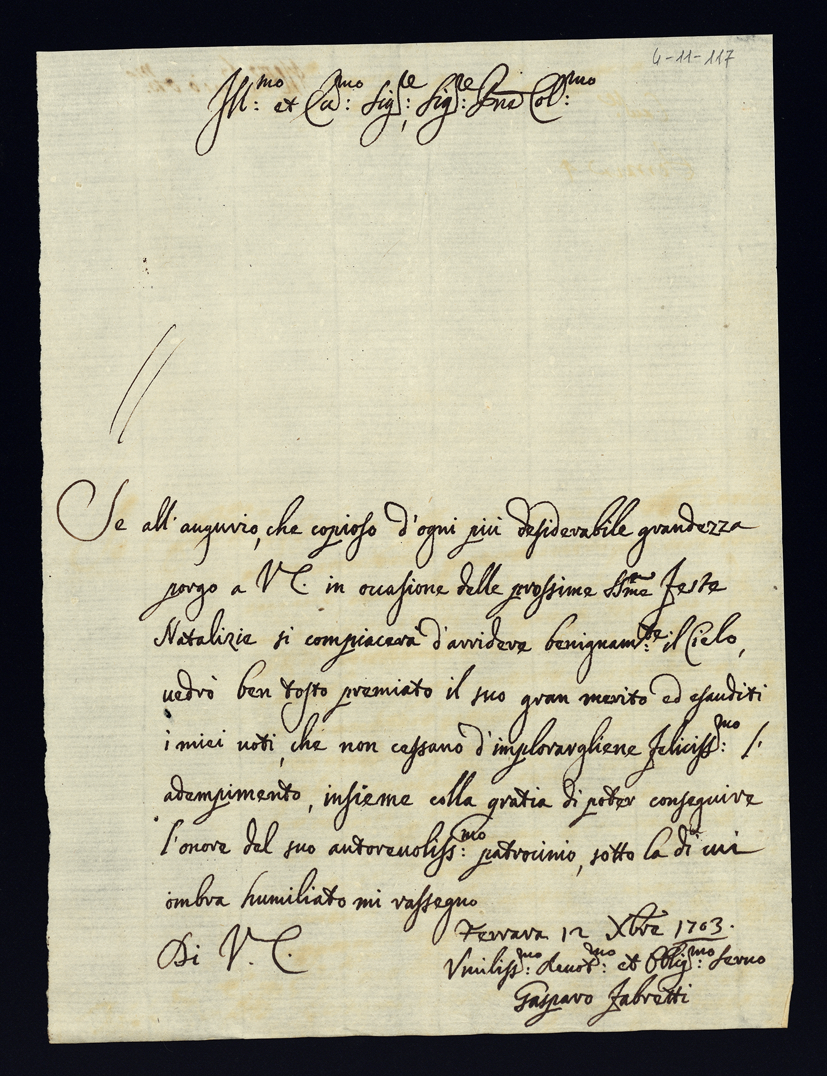 4-11-117
Ill:mo et Ecc:mo Sig:re, Sig:re Pne Col:mo
Se all'augurio, che copioso d'ogni più desiderabile grandezza
porgo a V E in occasione delle prossime SSme Feste
Natalizie si compiacerà d'arridere benignam:te il Cielo,
vedrò ben tosto premiato il suo gran merito ed esauditi
i miei uoti, che non cessano d'implorargliene feliciss:mo l'
adempimento, insieme colla gratia di poter conseguire
l'onore del suo autoreuoliss:mo patrocinio, sotto la di cui
ombra humiliato mi rassegno
Ferrara 12 Xbre 1703.
Di V. E.
Vmiliss:mo Deuot:mo et Oblig:mo Seruo
Gasparo Fabretti